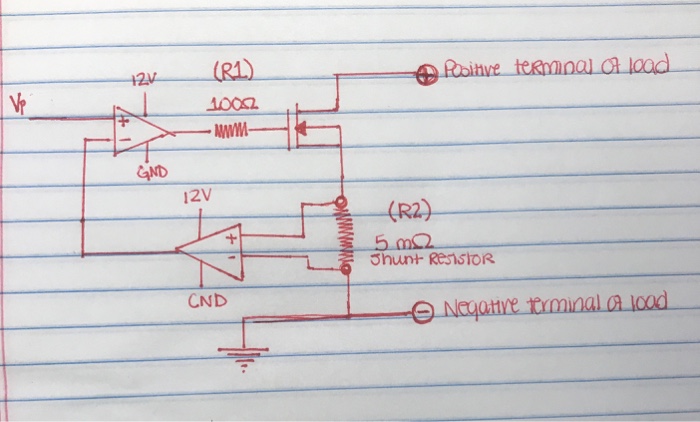 (R1)
Positive terminal of load
12V
Vp
100Ω
+
+
-
GND
12V
(R2)
+
5 mΩ
-
Shunt Resistor
GND
- Negative terminal of load